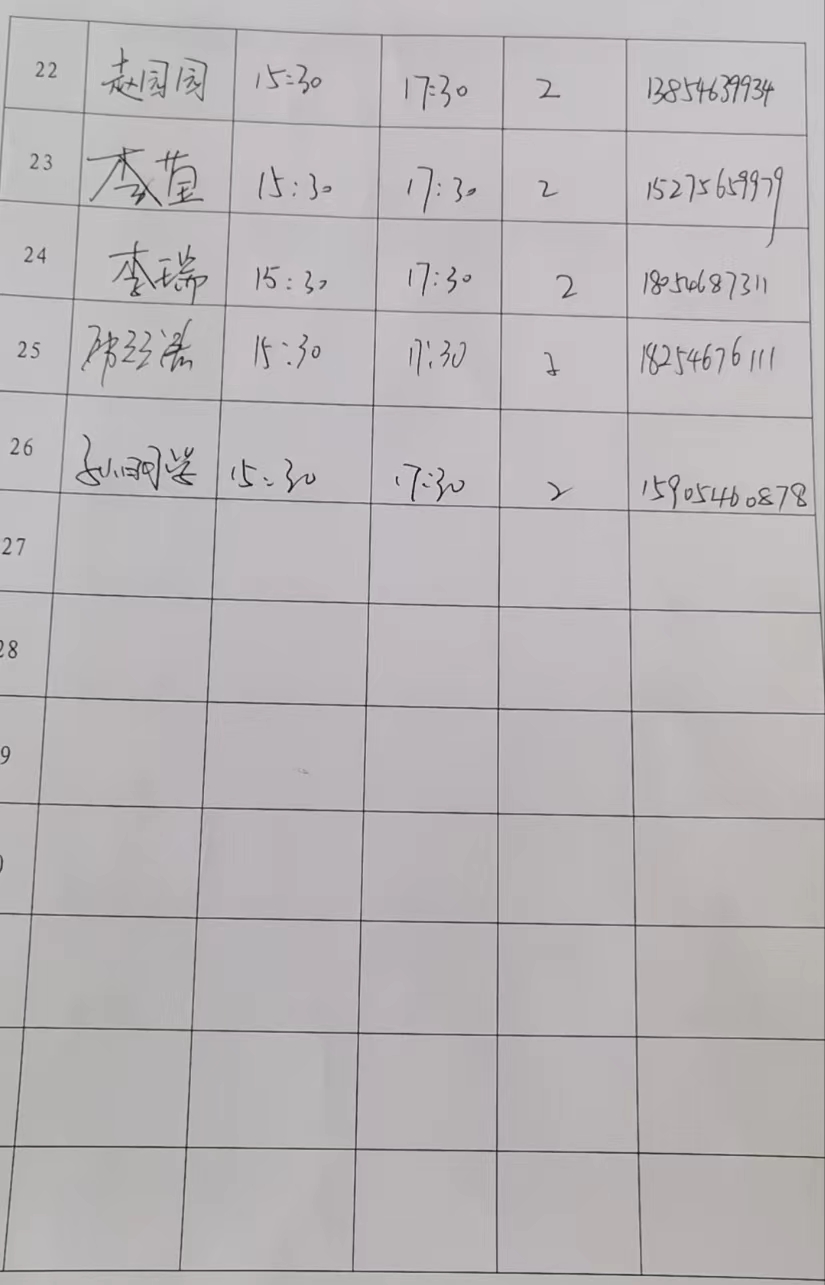 22 赵园园 15:30 17:30 2 13854639934
23 李莹 15:30 17:30 2 15275659979
24 李瑞 15:30 17:30 2 18054687311
25 15:30 17:30 2 18254676111
26 15:30 17:30 2 15905460878
27
28
9